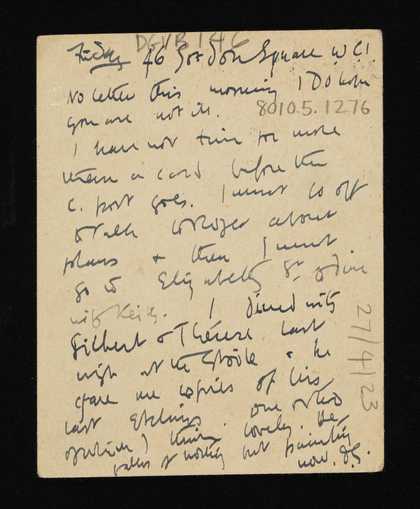 DGVB 146
Friday 46 Gordon Square WC1
No letter this morning I Do hope
you are not ill.
8010.5.1276
I have not time for more
than a card before the
c. post goes. I must go off
& talk to Roger about
plans & then I must
go to Elizabeth St & dine
with Keith. I dined with
Gilbert & Thérèse last
night at the Etoile & he
gave me copies of his
last etchings. one or two
of which I think lovely. He
talks of nothing but painting
now. DG.
27/4/23